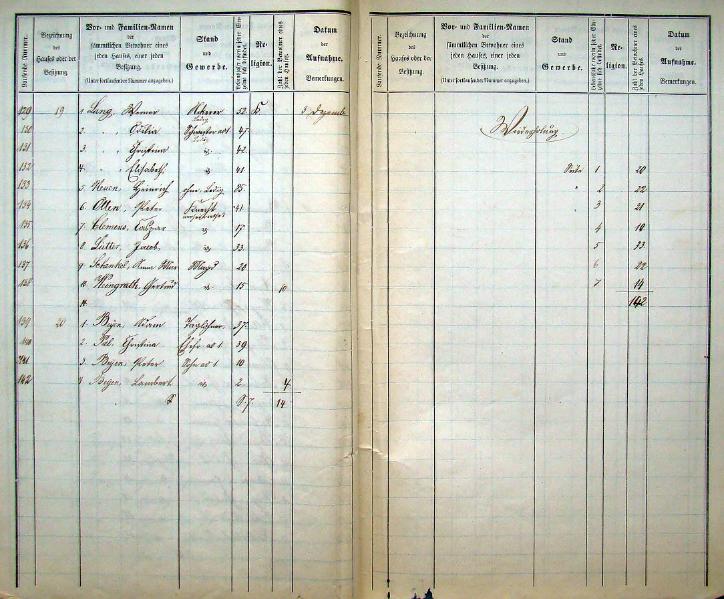 Laufende Nummer.
Bezeichnung
des
Hauses oder der
Besitzung.
Vor- und Familien-Namen
der
sämmtlichen Bewohner eines
jeden Hauses, einer jeden
Besitzung.
(Unter fortlaufender Nummer angegeben.)
Stand
und
Gewerbe.
Re-
ligion.
Zahl der Bewohner eines
jeden Hauses.
Datum
der
Aufnahme.
Bemerkungen.
129 19 1. Lang, Werner Ackerer 52. K.
130 2. " Odilia 47
131 3. " Christina " 42.
132 4. " Elisabeth " 41
133 5. Heinrich ohne, ledig 85.
134 6. Otten, Peter Knecht 41
135 7. Clemens, Caspar " 17
136 8. Lutter, Jacob, " 33.
137 9. Magd 20
138 10. Gertrud " 15 10
11.
139 20 1. Adam Taglöhner 37.
140 2. Christina 39
141 3. Peter Sohn ad 1 10
142 4. Lambert " 2 4
S. 7 14
Laufende Nummer.
Bezeichnung
des
Hauses oder der
Besitzung.
Vor- und Familien-Namen
der
sämmtlichen Bewohner eines
jeden Hauses, einer jeden
Besitzung.
(Unter fortlaufender Nummer angegeben.)
Stand
und
Gewerbe.
Re-
ligion.
Zahl der Bewohner eines
jeden Hauses.
Datum
der
Aufnahme.
Bemerkungen.
Wiederholung
Seite 1 20
" 2 22
" 3 21
4 10
5 33
6 22
7 14
142